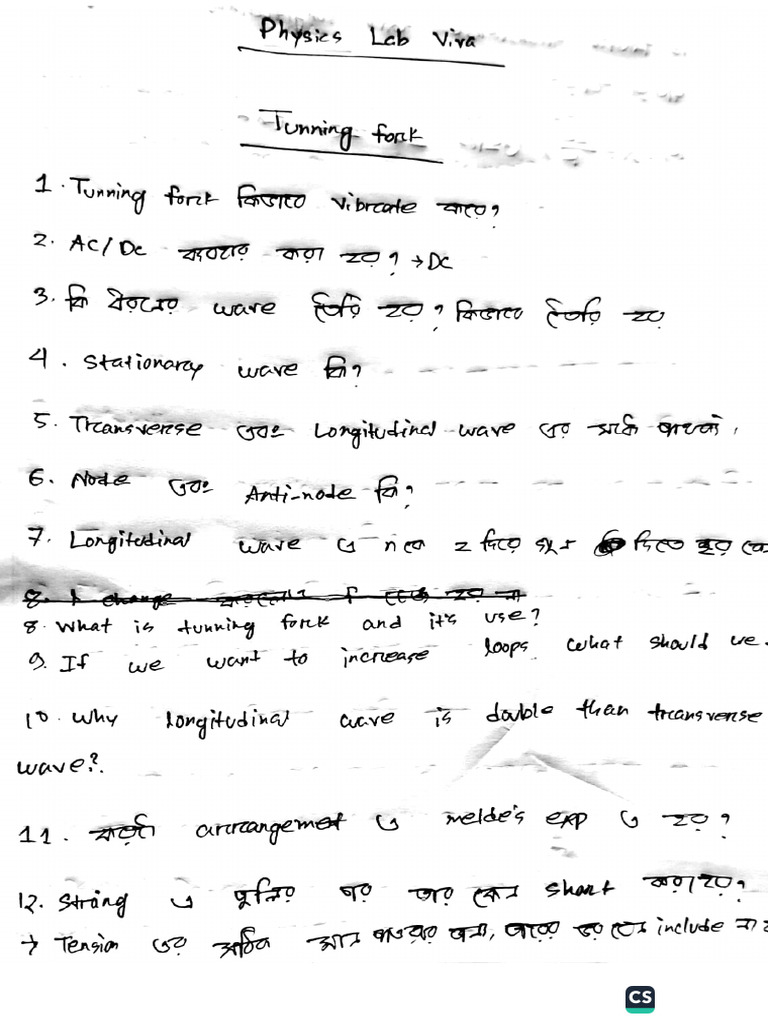 Physics Lab Viva
Tunning fork
1. Tunning fork কিভাবে vibrate করে?
2. AC/DC ব্যবহার করা হয়? → DC
3. কি ধরনের wave তৈরি হয়? কিভাবে তৈরি হয়
4. Stationary wave কি?
5. Transverse এবং Longitudinal wave এর মধ্যে পার্থক্য।
6. Node এবং Anti-node কি?
7. Longitudinal wave এ n কে 2 দিয়ে গুণ দিতে হয়
8. What is tunning fork and it's use?
9. If we want to increase loops what should we
10. Why longitudinal wave is double than transverse
wave?
11. কয়টা arrangement এ melde's exp এ হয়?
12. String এ পুলির পর তার কেন short করা হয়?
→ Tension এর সঠিক মান পাওয়ার জন্য, তারের ভর include না
CS